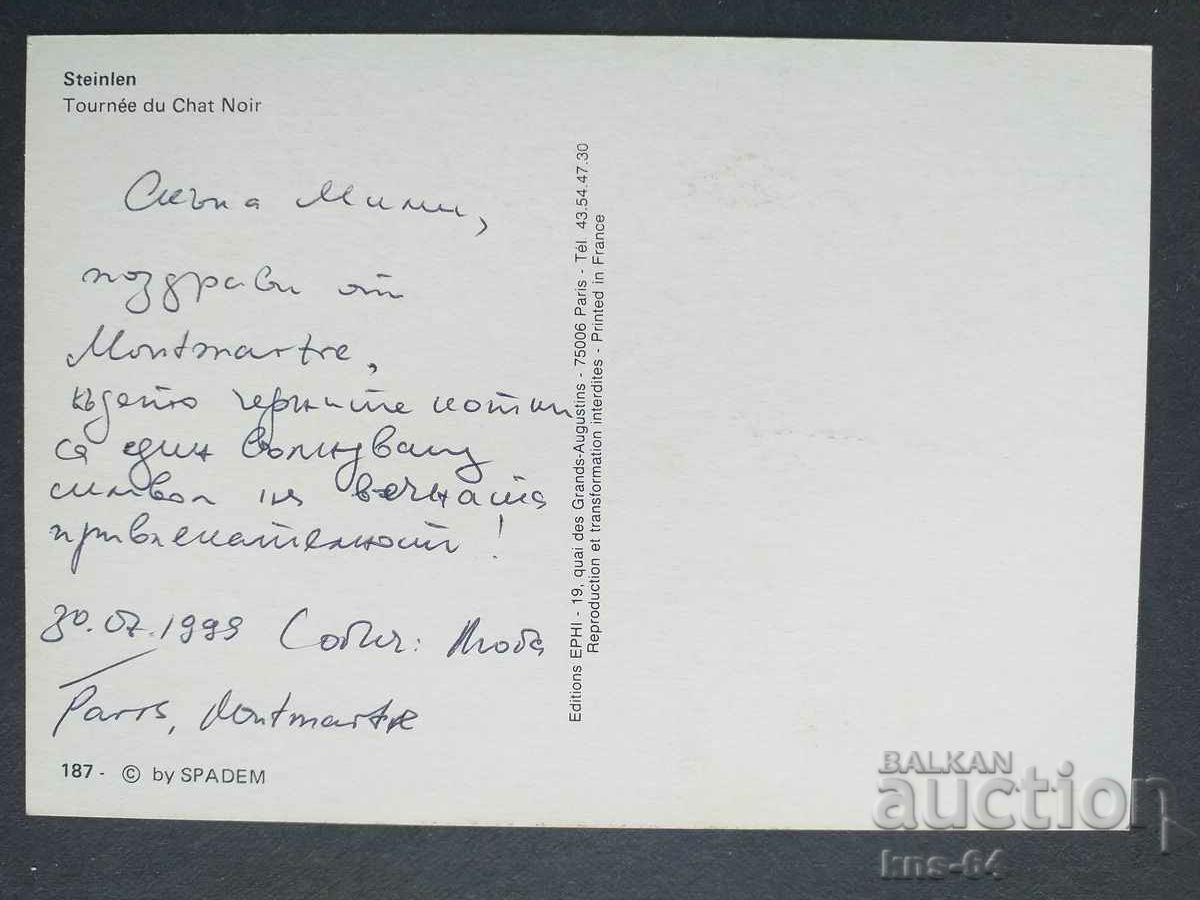 Steinlen
Tournée du Chat Noir
Скъпа Мими,
поздрави от
Montmartre,
където черните котки
са един вълнуващ
символ на вечната
привлекателност!
30.07.1999
Paris, Montmartre
187 - © by SPADEM
Editions EPHI - 19, quai des Grands-Augustins - 75006 Paris - Tél. 43.54.47.30
Reproduction et transformation interdites - Printed in France
BALKAN
auction
kns-64